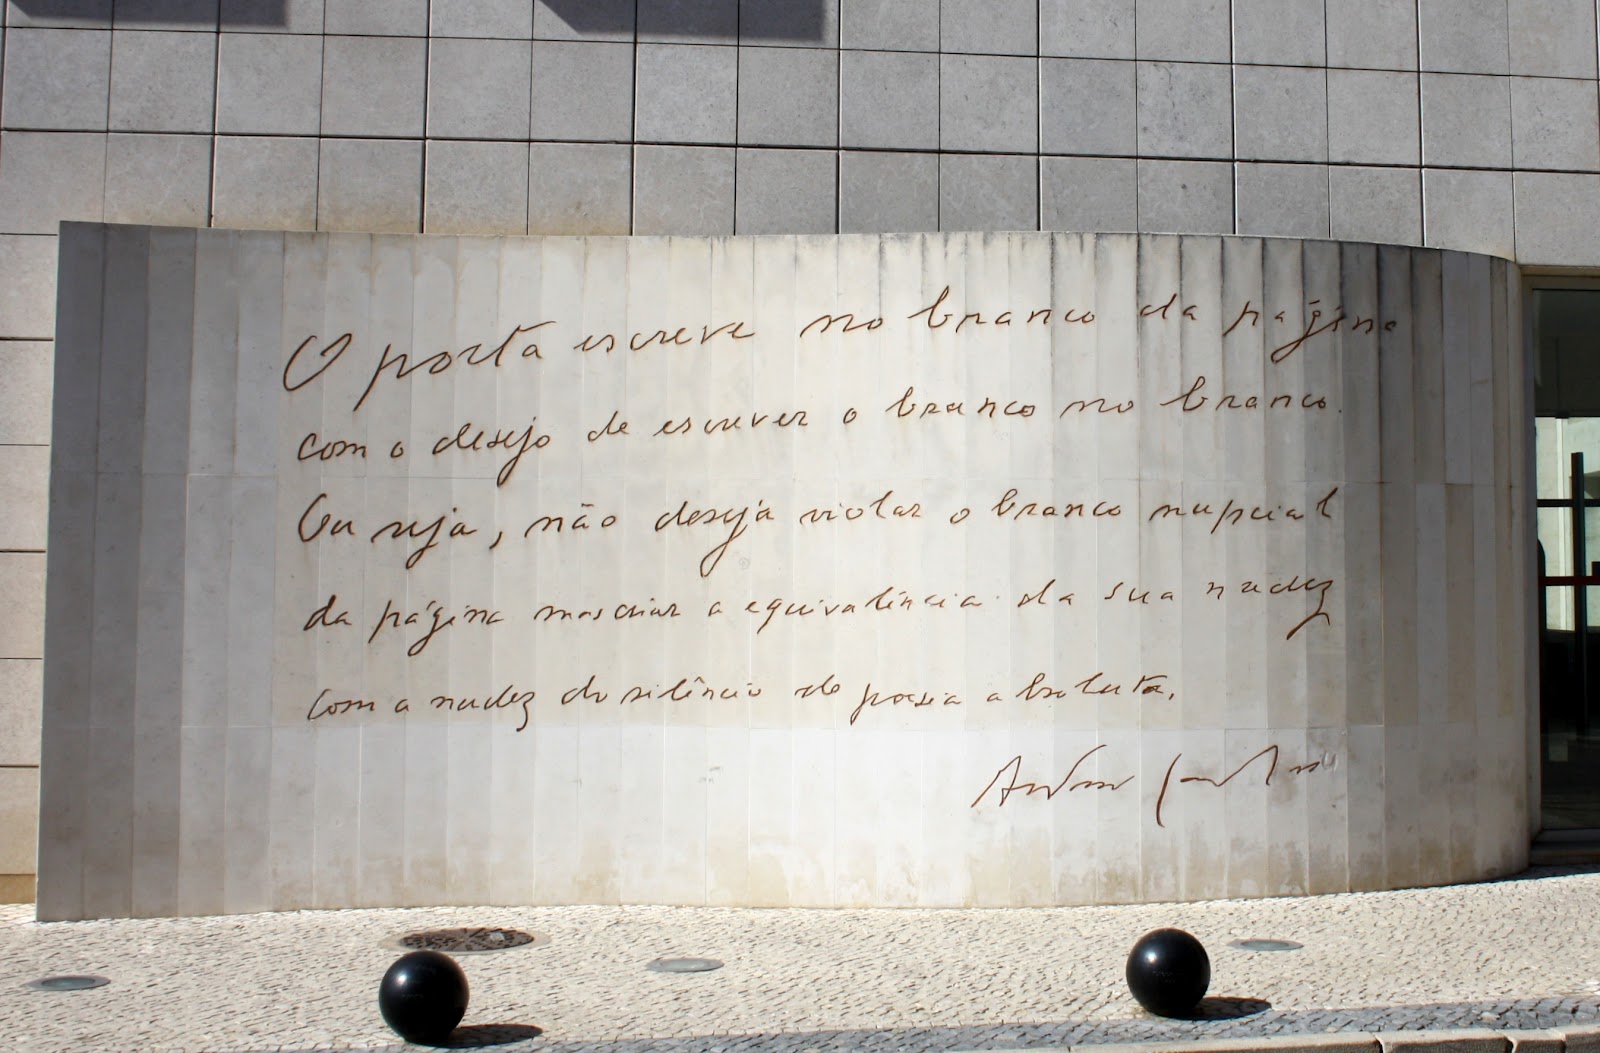 O poeta escreve no branco da página
com o desejo de escrever o branco no branco.
Ou seja, não deseja violar o branco nupcial
da página mas criar a equivalência da sua nudez
com a nudez do silêncio da poesia absoluta.